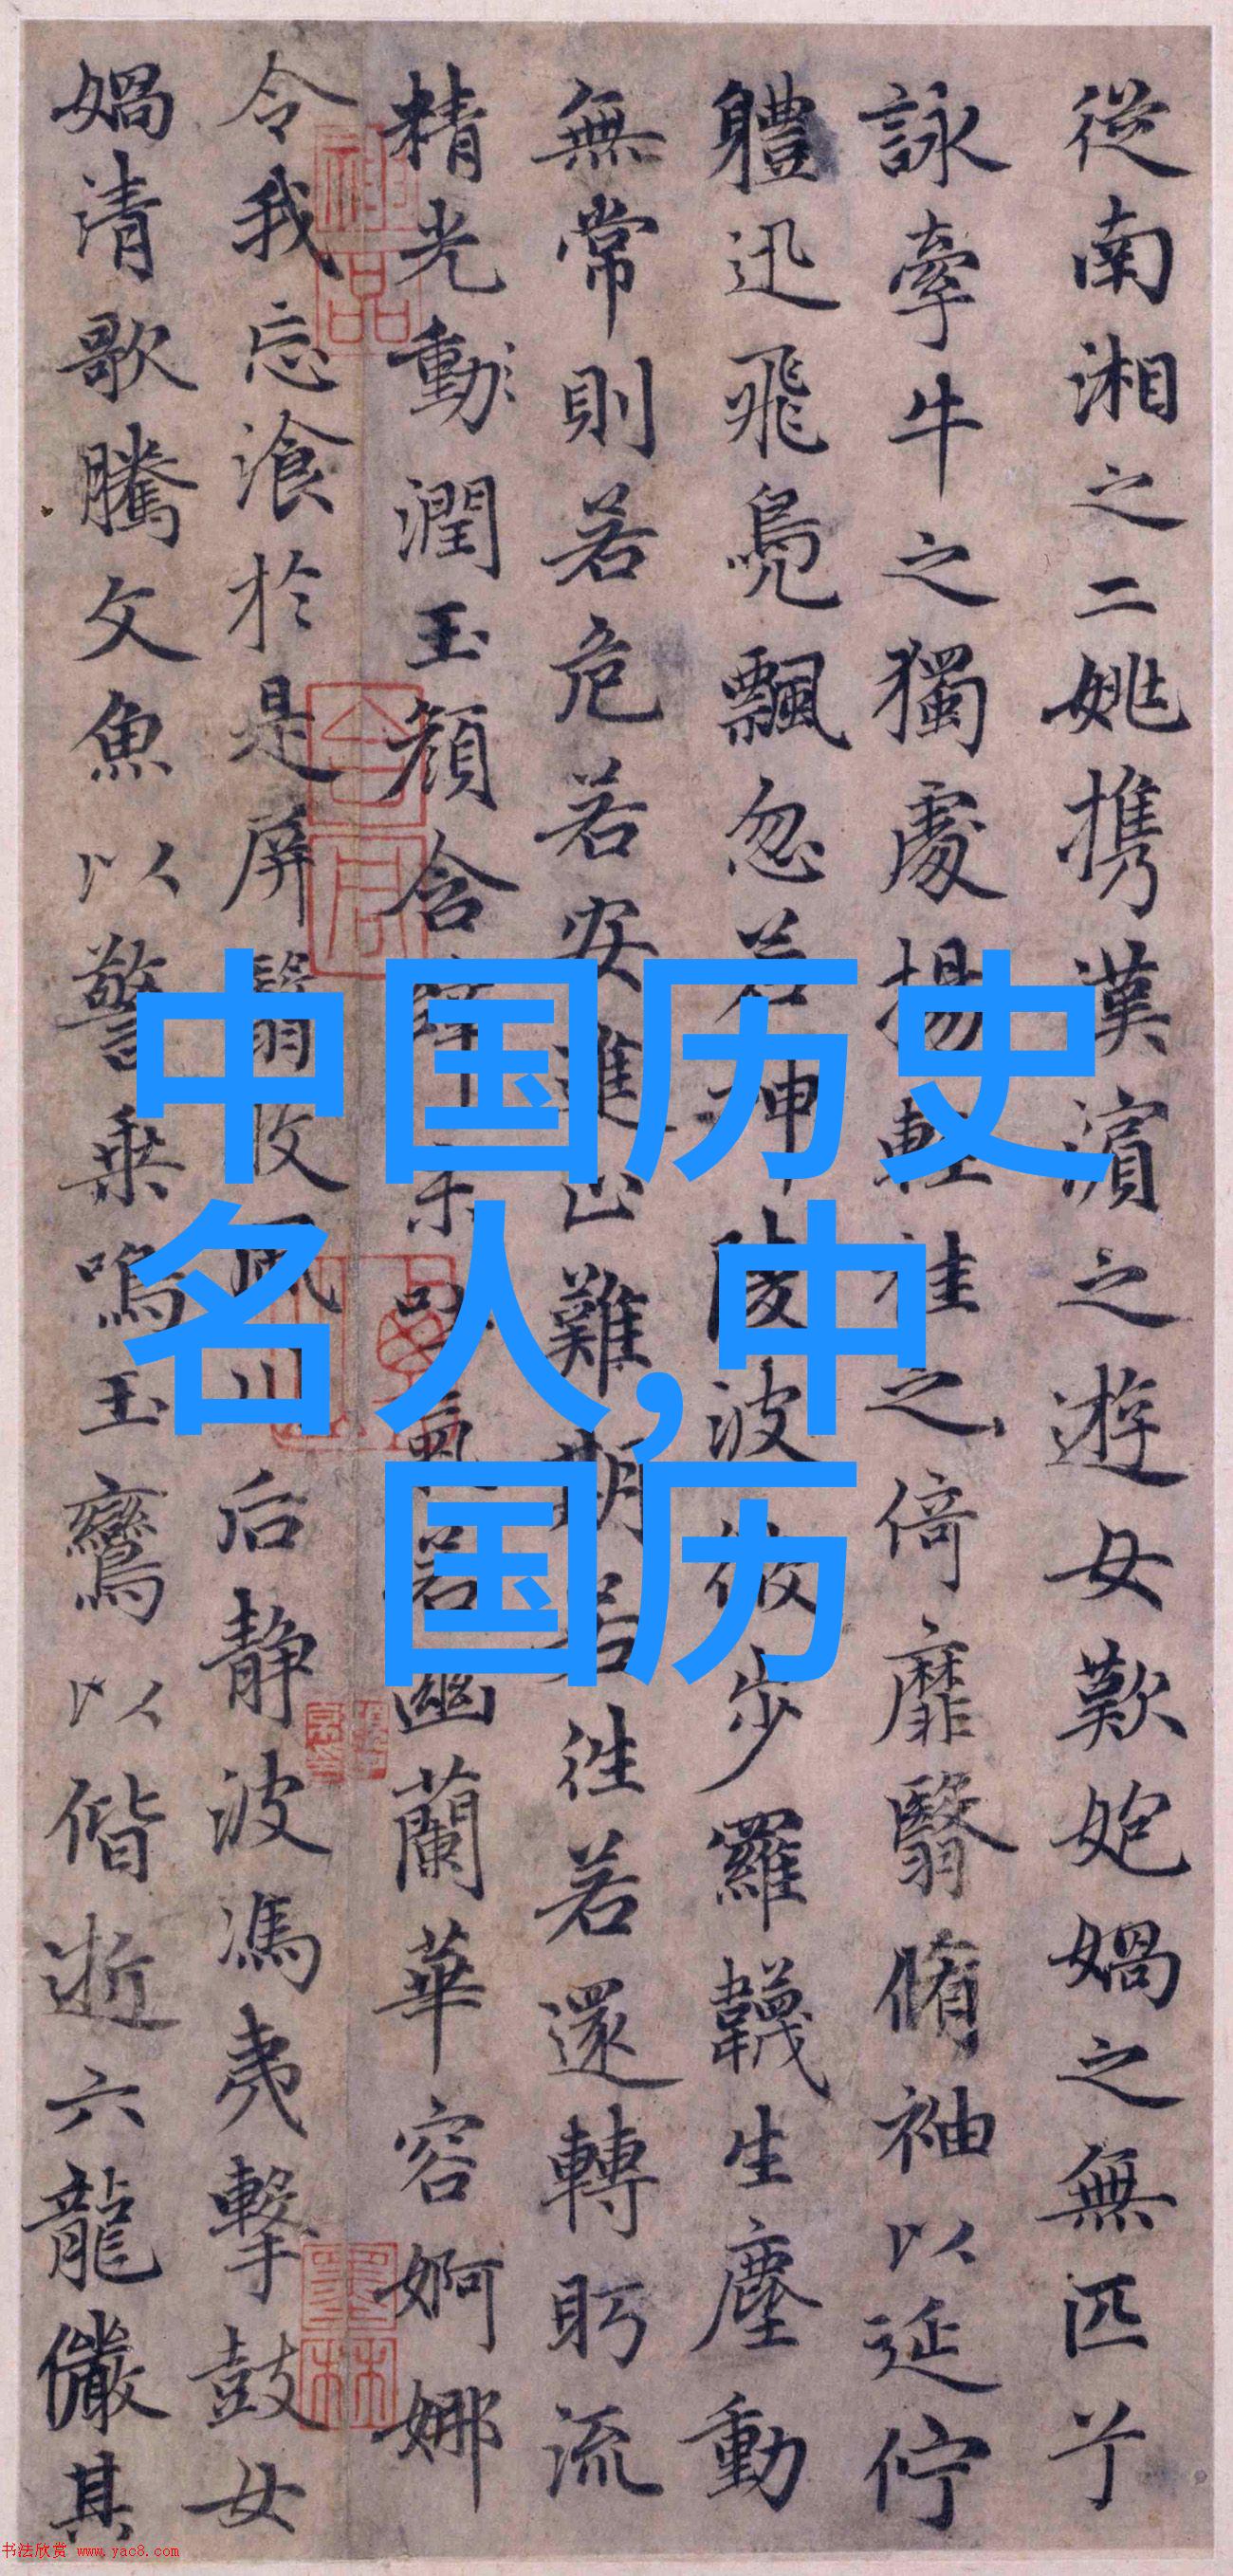 中国历史
名人,中
国历
從南湘之二姚携漢濱之遊女歎媧之無匹兮
詠牽牛之獨處揚輕袿之倚靡翳脩袖以延佇
軆迅飛鳧飄忽若神陵波微步羅韈生塵動
無常則若危若安進止難期若往若還轉眄流
精光動潤玉顔含辞未吐氣若幽蘭華容婀娜
令我忘飡於是屏翳收風川后静波馮夷擊鼓女
媧清歌騰文魚以警乗鳴玉鸞以偕逝六龍儼其
神品
墨林
书法欣赏 www.yac8.com